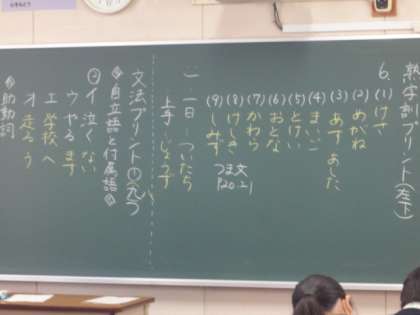 熟字訓プリント(左下)
6.
(1) けさ
(2) めがね
(3) あす あした
(4) まいご
(5) とけい
(6) おとな
(7) かわら
(8) けしき
(9) しみず
つま文
P20.21
一日-ついたち
上手-じょうず
文法プリント①
自立語と付属語
イ 泣く ない
ウ やる ます
エ 学校 へ
オ 走る う
助動詞